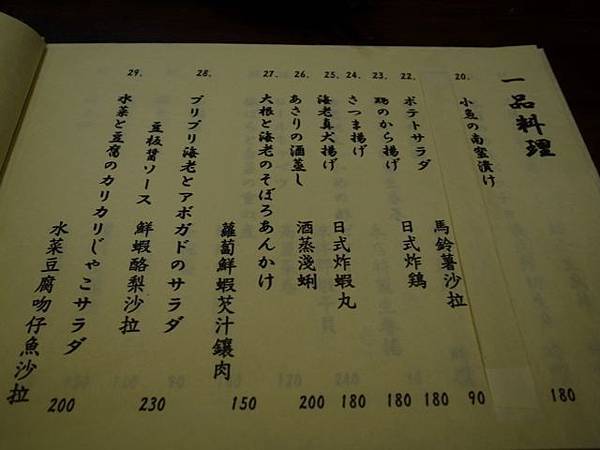 一品料理
20. 小魚の南蛮漬け 180
22. ポテトサラダ 馬鈴薯沙拉 90
23. 鶏のから揚げ 日式炸鶏 180
24. さつま揚げ 180
25. 海老真丈揚げ 日式炸蝦丸 180
26. あさりの酒蒸し 酒蒸淺蜊 200
27. 大根と海老のそぼろあんかけ 蘿蔔鮮蝦芡汁鑲肉 150
28. プリプリ海老とアボガドのサラダ
豆板醤ソース 鮮蝦酪梨沙拉 230
29. 水菜と豆腐のカリカリじゃこサラダ
水菜豆腐吻仔魚沙拉 200